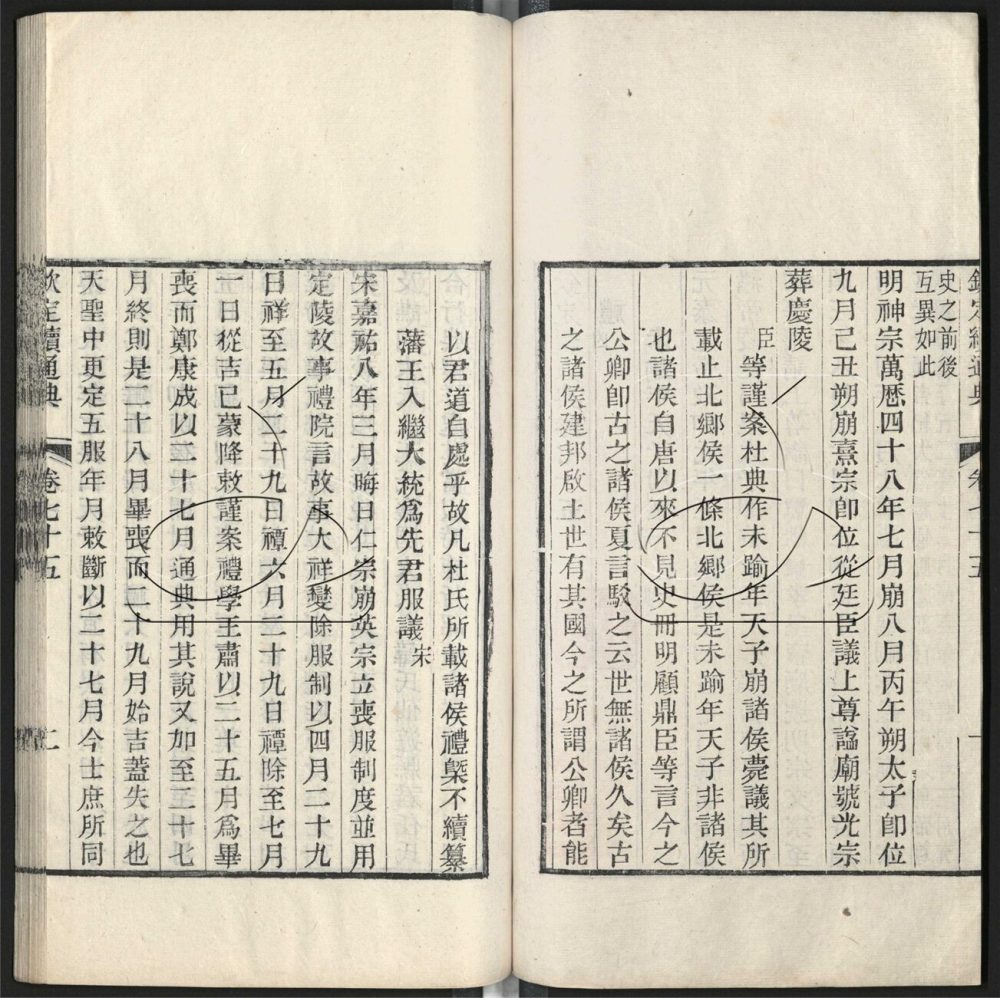 史之前後
互異如此
明神宗萬厯四十八年七月崩八月丙午朔太子卽位
九月己丑朔崩熹宗卽位從廷臣議上尊諡廟號光宗
葬慶陵
臣等謹案杜典作未踰年天子崩諸侯薨議其所
載止北鄉侯一條北鄉侯是未踰年天子非諸侯
也諸侯自唐以來不見史冊明顧鼎臣等言今之
公卿卽古之諸侯夏言駁之云世無諸侯久矣古
之諸侯建邦啟土世有其國今之所謂公卿者能
以君道自處乎故凡杜氏所載諸侯禮槩不續纂
藩王入繼大統爲先君服議宋
宋嘉祐八年三月晦日仁宗崩英宗立喪服制度並用
定陵故事禮院言故事大祥變除服制以四月二十九
日祥至五月二十九日禫六月二十九日禫除至七月
一日從吉已蒙降敕謹案禮學王肅以二十五月爲畢
喪而鄭康成以二十七月通典用其說又加至二十七
月終則是二十八月畢喪而二十九月始吉蓋失之也
天聖中更定五服年月敕斷以二十七月今士庶所同
欽定續通典
卷七十五
二